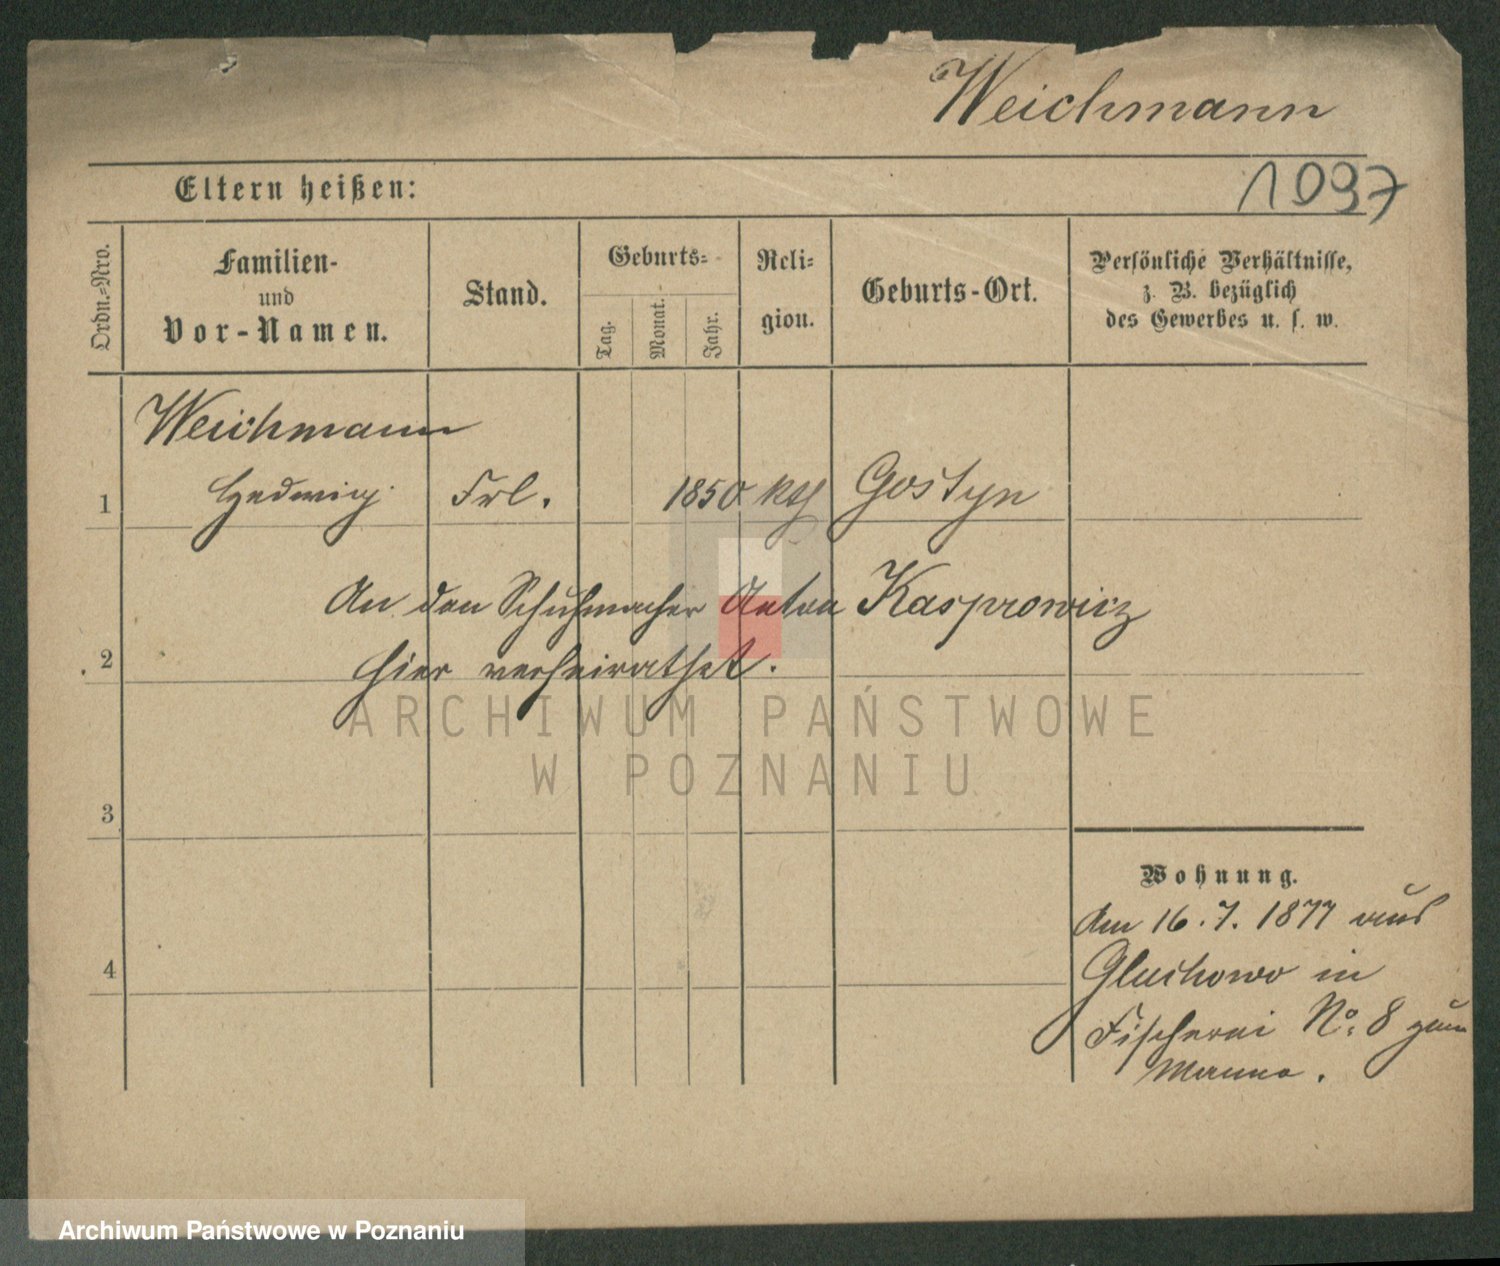 Weichmann
1097
Eltern heißen:
Ordn.=Nro.
Familien-
und
Vor-Namen.
Stand.
Geburts=
Tag.
Monat.
Jahr.
Reli=
gion.
Geburts-Ort.
Persönliche Verhältnisse,
z. B. bezüglich
des Gewerbes u. s. w.
Weichmann
1 Hedwig Frl. 1850 Gostyn
An den Schuhmacher Anton Kasprowicz
2 hier verheirathet.
ARCHIWUM PAŃSTWOWE
W POZNANIU
3
Wohnung.
Am 16.7.1877 aus
4 Gluchowo in
Fischerei No: 8 zum
Manne.
Archiwum Państwowe w Poznaniu